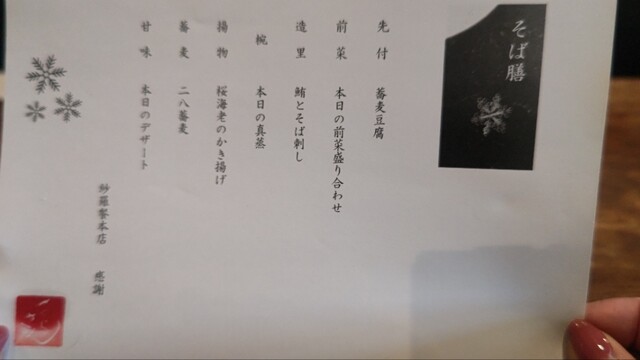 そば膳
先付 蕎麦豆腐
前菜 本日の前菜盛り合わせ
造里 鮪とそば刺し
椀 本日の真蒸
揚物 桜海老のかき揚げ
蕎麦 二八蕎麦
甘味 本日のデザート
紗羅餐本店 感謝